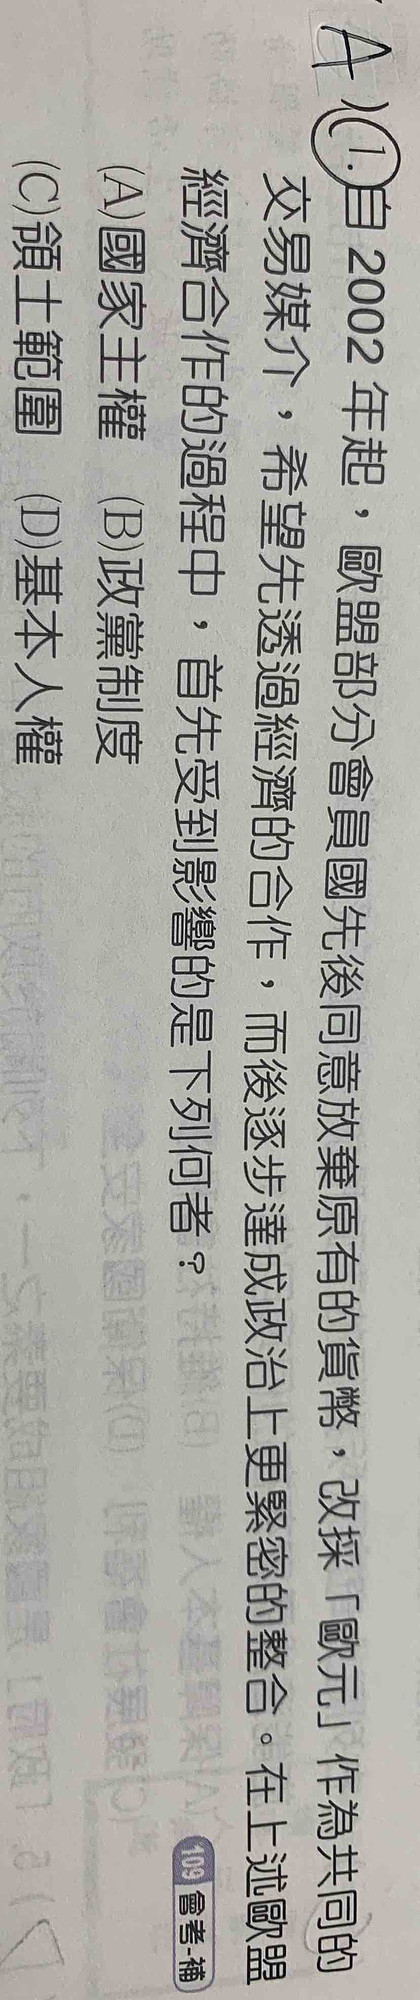 (A)1.自 2002 年起，歐盟部分會員國先後同意放棄原有的貨幣，改採「歐元」作為共同的
交易媒介，希望先透過經濟的合作，而後逐步達成政治上更緊密的整合。在上述歐盟
經濟合作的過程中，首先受到影響的是下列何者？ 109 會考-補
(A)國家主權 (B)政黨制度
(C)領土範圍 (D)基本人權